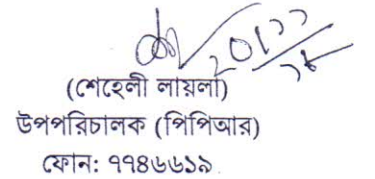 (শেহেলী লায়লা)
উপপরিচালক (পিপিআর)
ফোন: ৭৭৪৬৬১৯